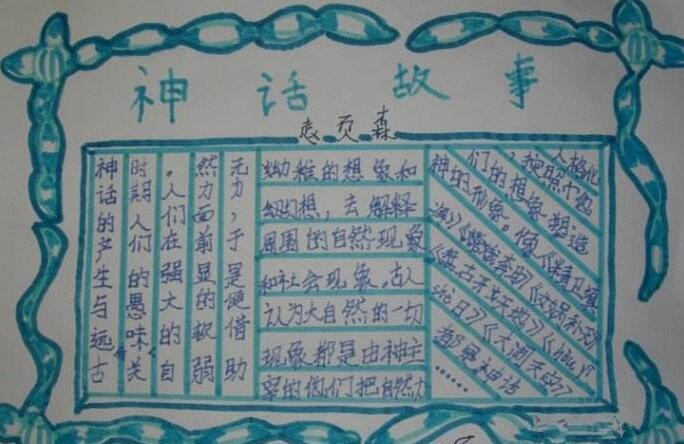 神话故事
神话的产生与远古
时期人们的愚昧关
。人们在强大的自
然力面前显的软弱
无力，于是便借助
幼稚的想象和
幻想，去解释
周围的自然现象
和社会现象。古人
认为大自然的一切
现象都是由神主
宰的他们把自然力
人格化
，按照
们的想象塑造
神的形象。像《精卫填
海》《嫦娥奔月》《女娲补天》
《盘古开天地》《hou yi
she日》《大闹天宫》
都是神话
……